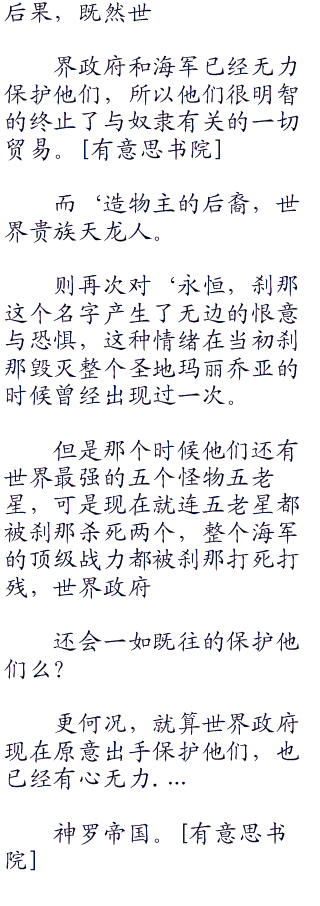 后果，既然世
界政府和海军已经无力
保护他们，所以他们很明智
的终止了与奴隶有关的一切
贸易。[有意思书院]
而‘造物主的后裔，世
界贵族天龙人。
则再次对‘永恒，刹那
这个名字产生了无边的恨意
与恐惧，这种情绪在当初刹
那毁灭整个圣地玛丽乔亚的
时候曾经出现过一次。
但是那个时候他们还有
世界最强的五个怪物五老
星，可是现在就连五老星都
被刹那杀死两个，整个海军
的顶级战力都被刹那打死打
残，世界政府
还会一如既往的保护他
们么？
更何况，就算世界政府
现在原意出手保护他们，也
已经有心无力....
神罗帝国。[有意思书
院]